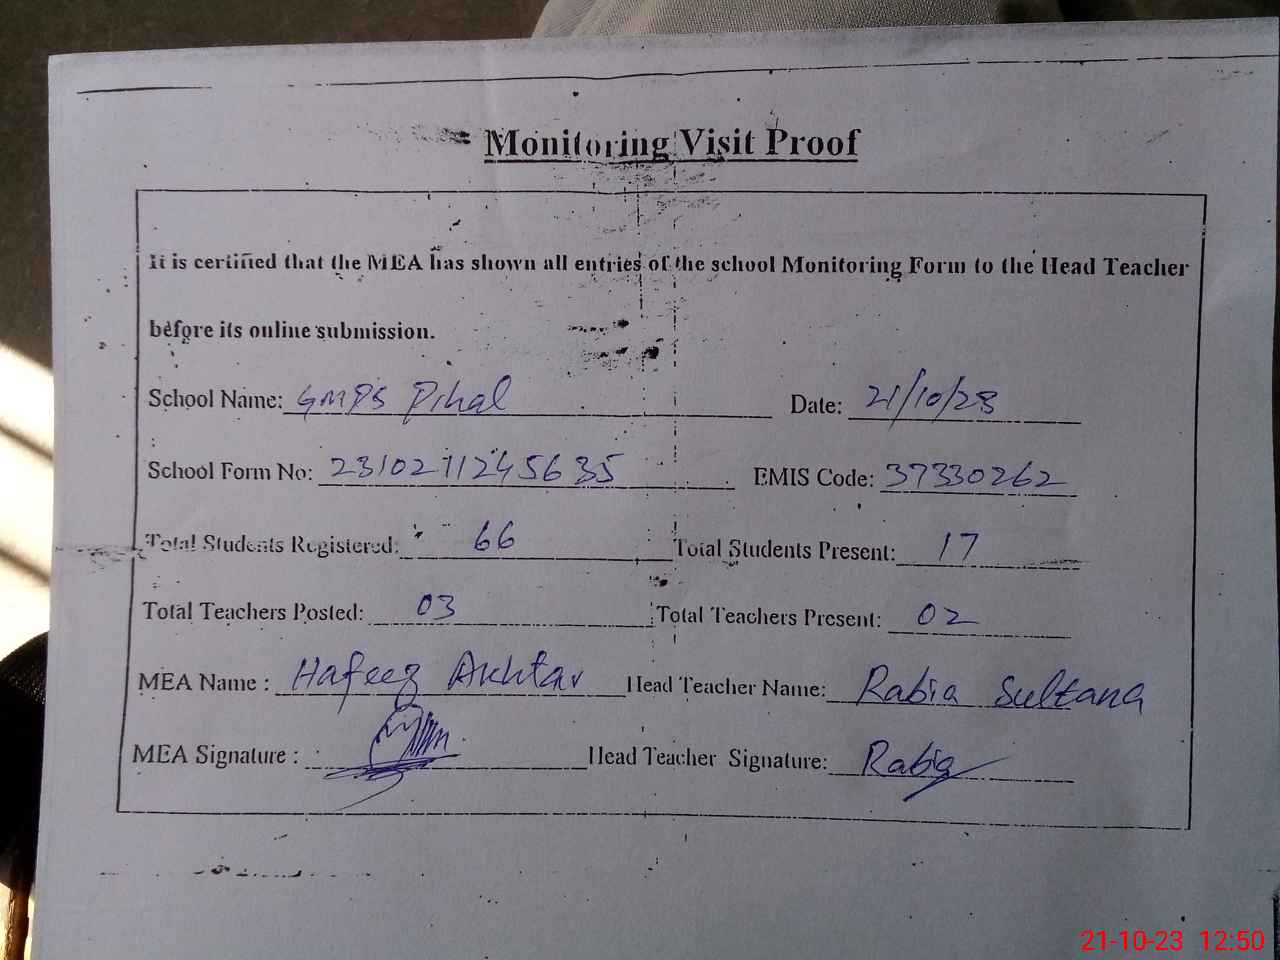 Monitoring Visit Proof
It is certified that the MEA has shown all entries of the school Monitoring Form to the Head Teacher
before its online submission.
School Name: GMPS Pihal Date: 21/10/23
School Form No: 2310211245635 EMIS Code: 37330262
Total Students Registered: 66 Total Students Present: 17
Total Teachers Posted: 03 Total Teachers Present: 02
MEA Name : Hafeez Akhtar Head Teacher Name: Rabia Sultana
MEA Signature : Head Teacher Signature: Rabia
21-10-23 12:50